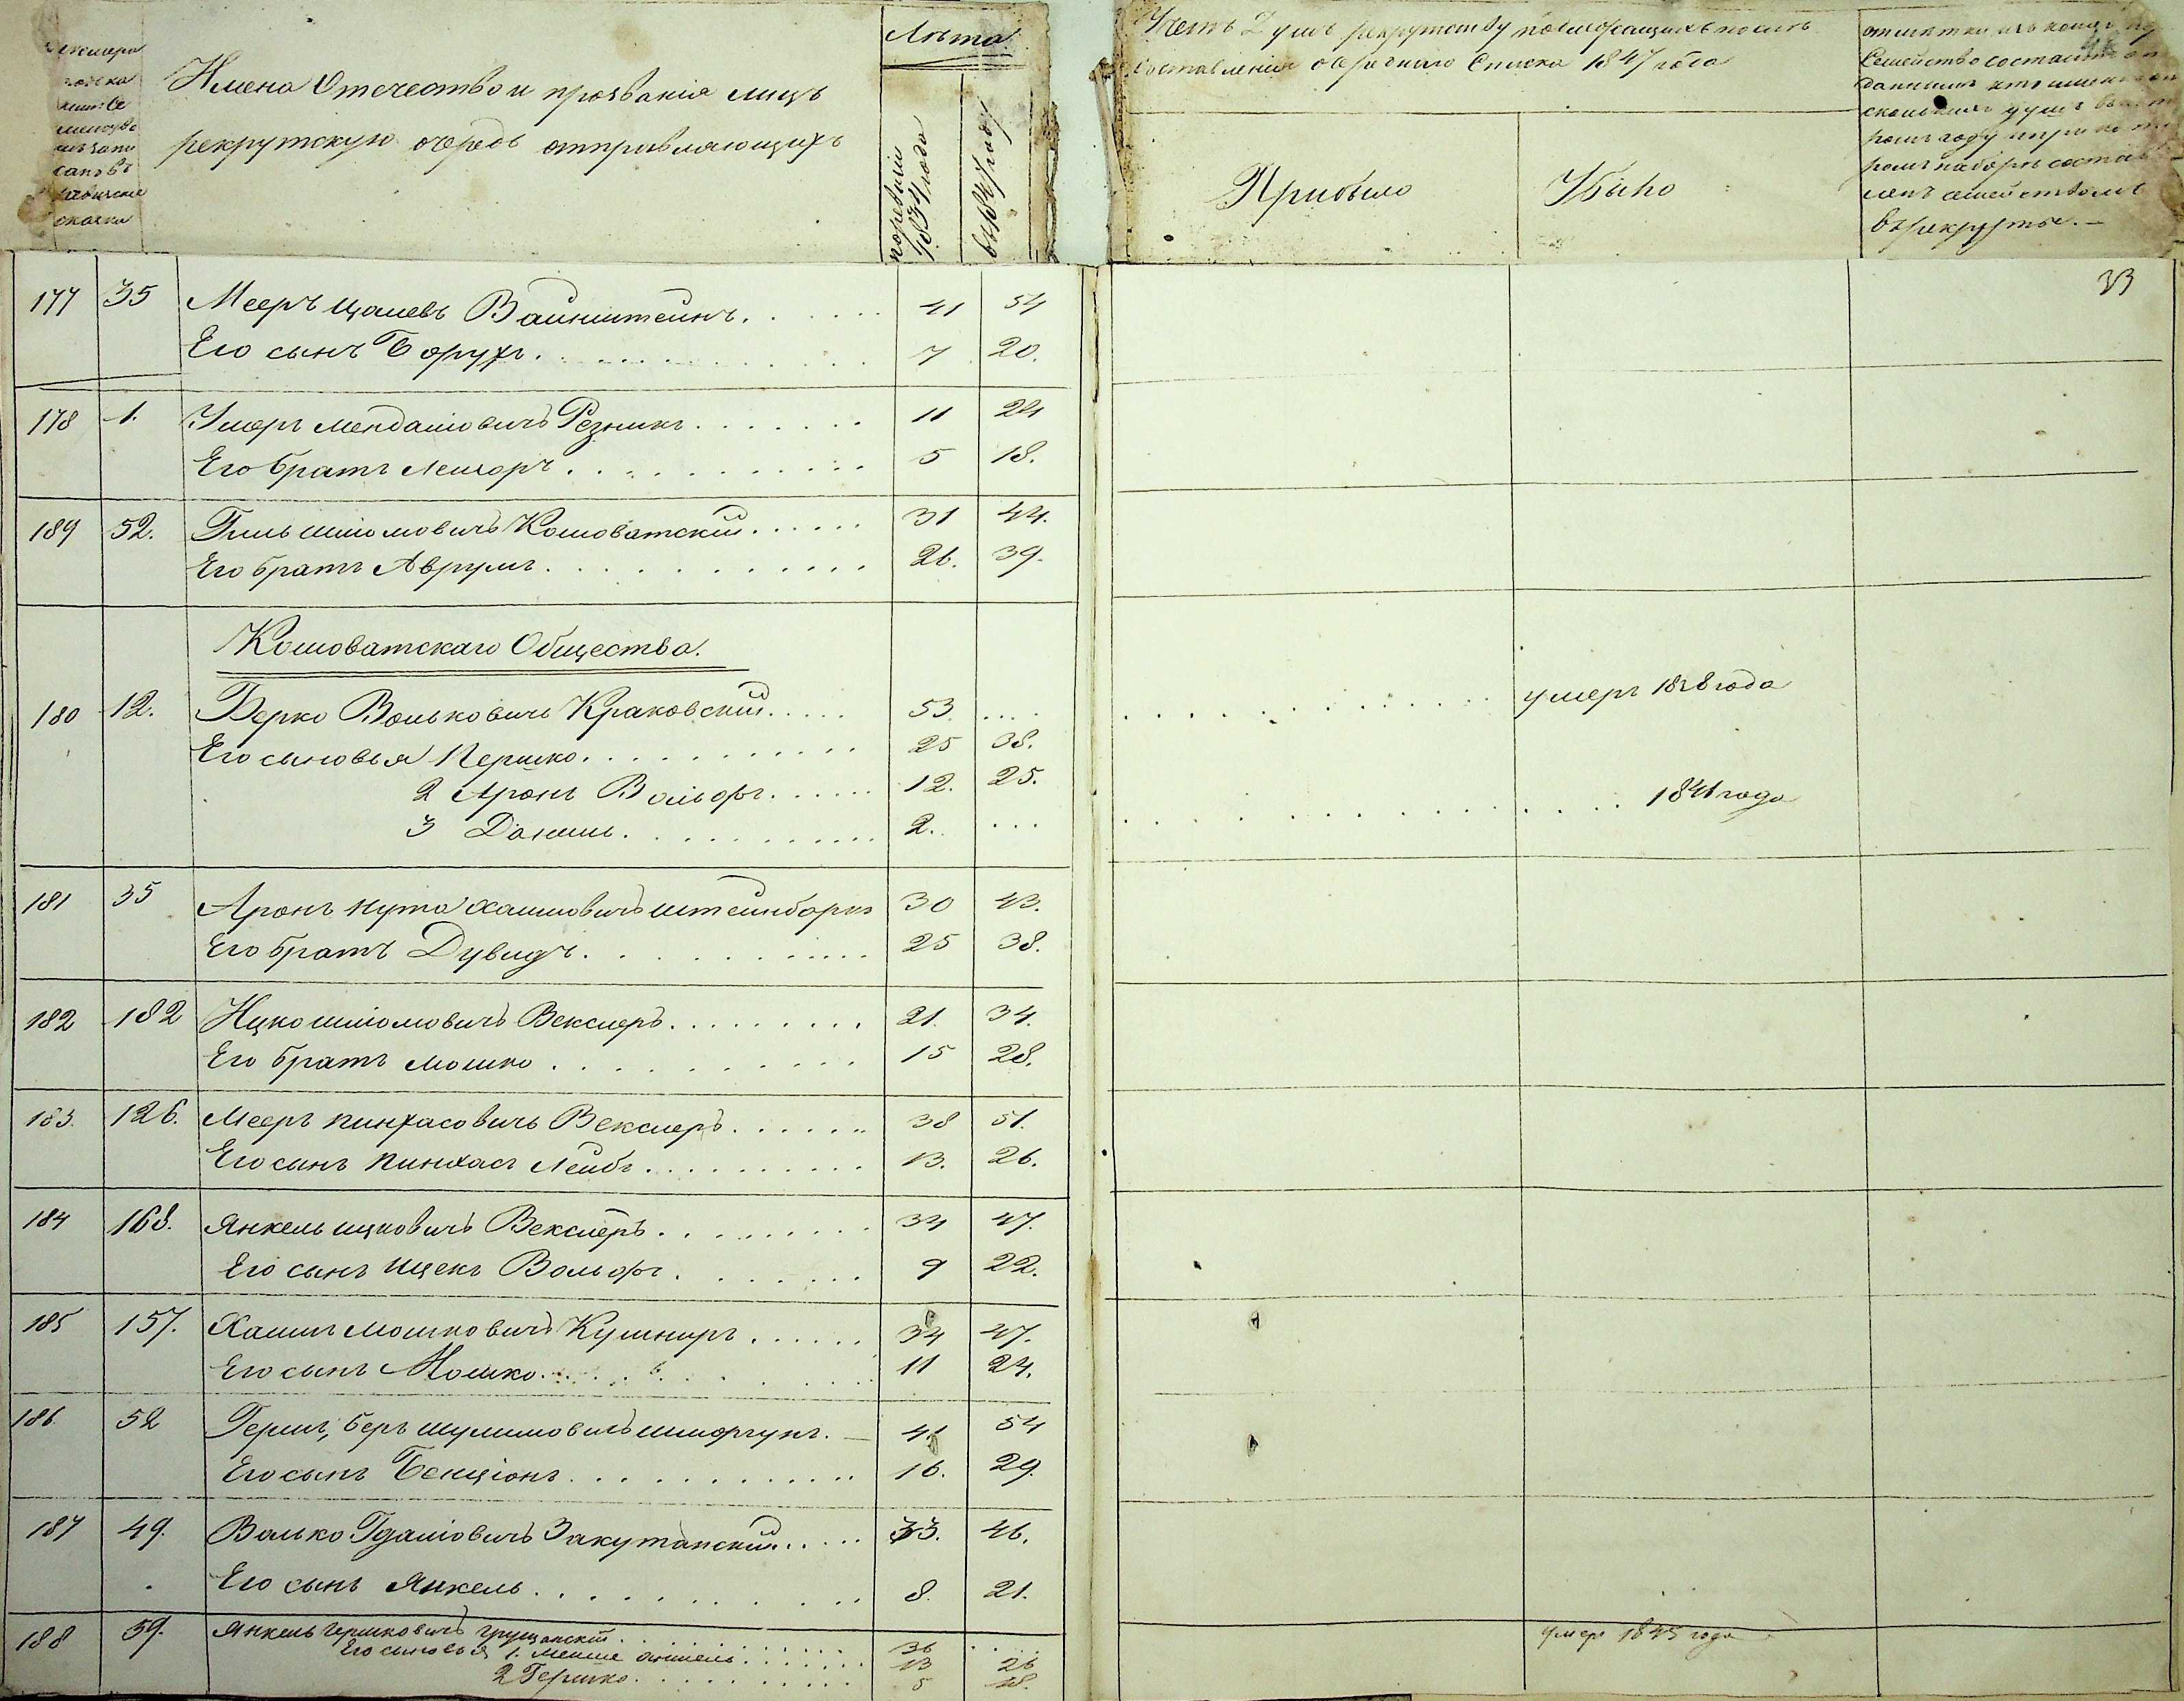 Имена Отечество и прозванія лицъ
рекрутскую очередь отправляющихъ
Лѣта
по ревизіи 1834 года
въ 1847 году
составленія очереднаго Списка 1847 года
Прибыло
Убыло
Семейство состоитъ
въ рекруты.
33
177 35 Мееръ Цалевъ Ваинштеинъ. 41 54
Его сынъ Борухъ. 7 20.
178 1. Умеръ Мендаліовичъ Резникъ 11 24
Его братъ Леизоръ 5 18.
189 52. Гиль Шліомовичъ Кошоватскій 31 44.
Его братъ Аврумъ 26. 39.
Кошоватскаго Общества.
180 12. Берко Вольковичъ Краковскій 53 .... умеръ 1828 года
Его сыновья Гершко 25 38.
2 Аронъ Вольфъ 12. 25.
3 Данииль 2. ... 1841 года
181 35 Аронъ Нута Хаимовичъ Штеинбаркъ 30 43.
Его братъ Дувидъ 25 38.
182 182 Ицко Шліомовичъ Векслеръ 21. 34.
Его братъ Мошко 15 28.
183. 126. Мееръ Пинхасовичъ Векслеръ 38 51.
Его сынъ Пинхасъ Леибъ 13. 26.
184 168. Янкель Ицковичъ Векслеръ 34 47.
Его сынъ Ицекъ Вольфъ 9 22.
185 157. Хаимъ Мошковичъ Кушниръ 34 47.
Его сынъ Мошко 11 24.
186 52 Гершъ, Беръ Шулимовичъ 41 54
Его сынъ Бенціонъ 16. 29.
187 49. Волько Гдаліовичъ Закутанскій 33. 46.
Его сынъ Янкель 8. 21.
188 59. Янкель Гершковичъ Грущанскій 36 .... умеръ 1845 года
Его сыновья 1. Аншель 13 26
2 Гершко 5 18.